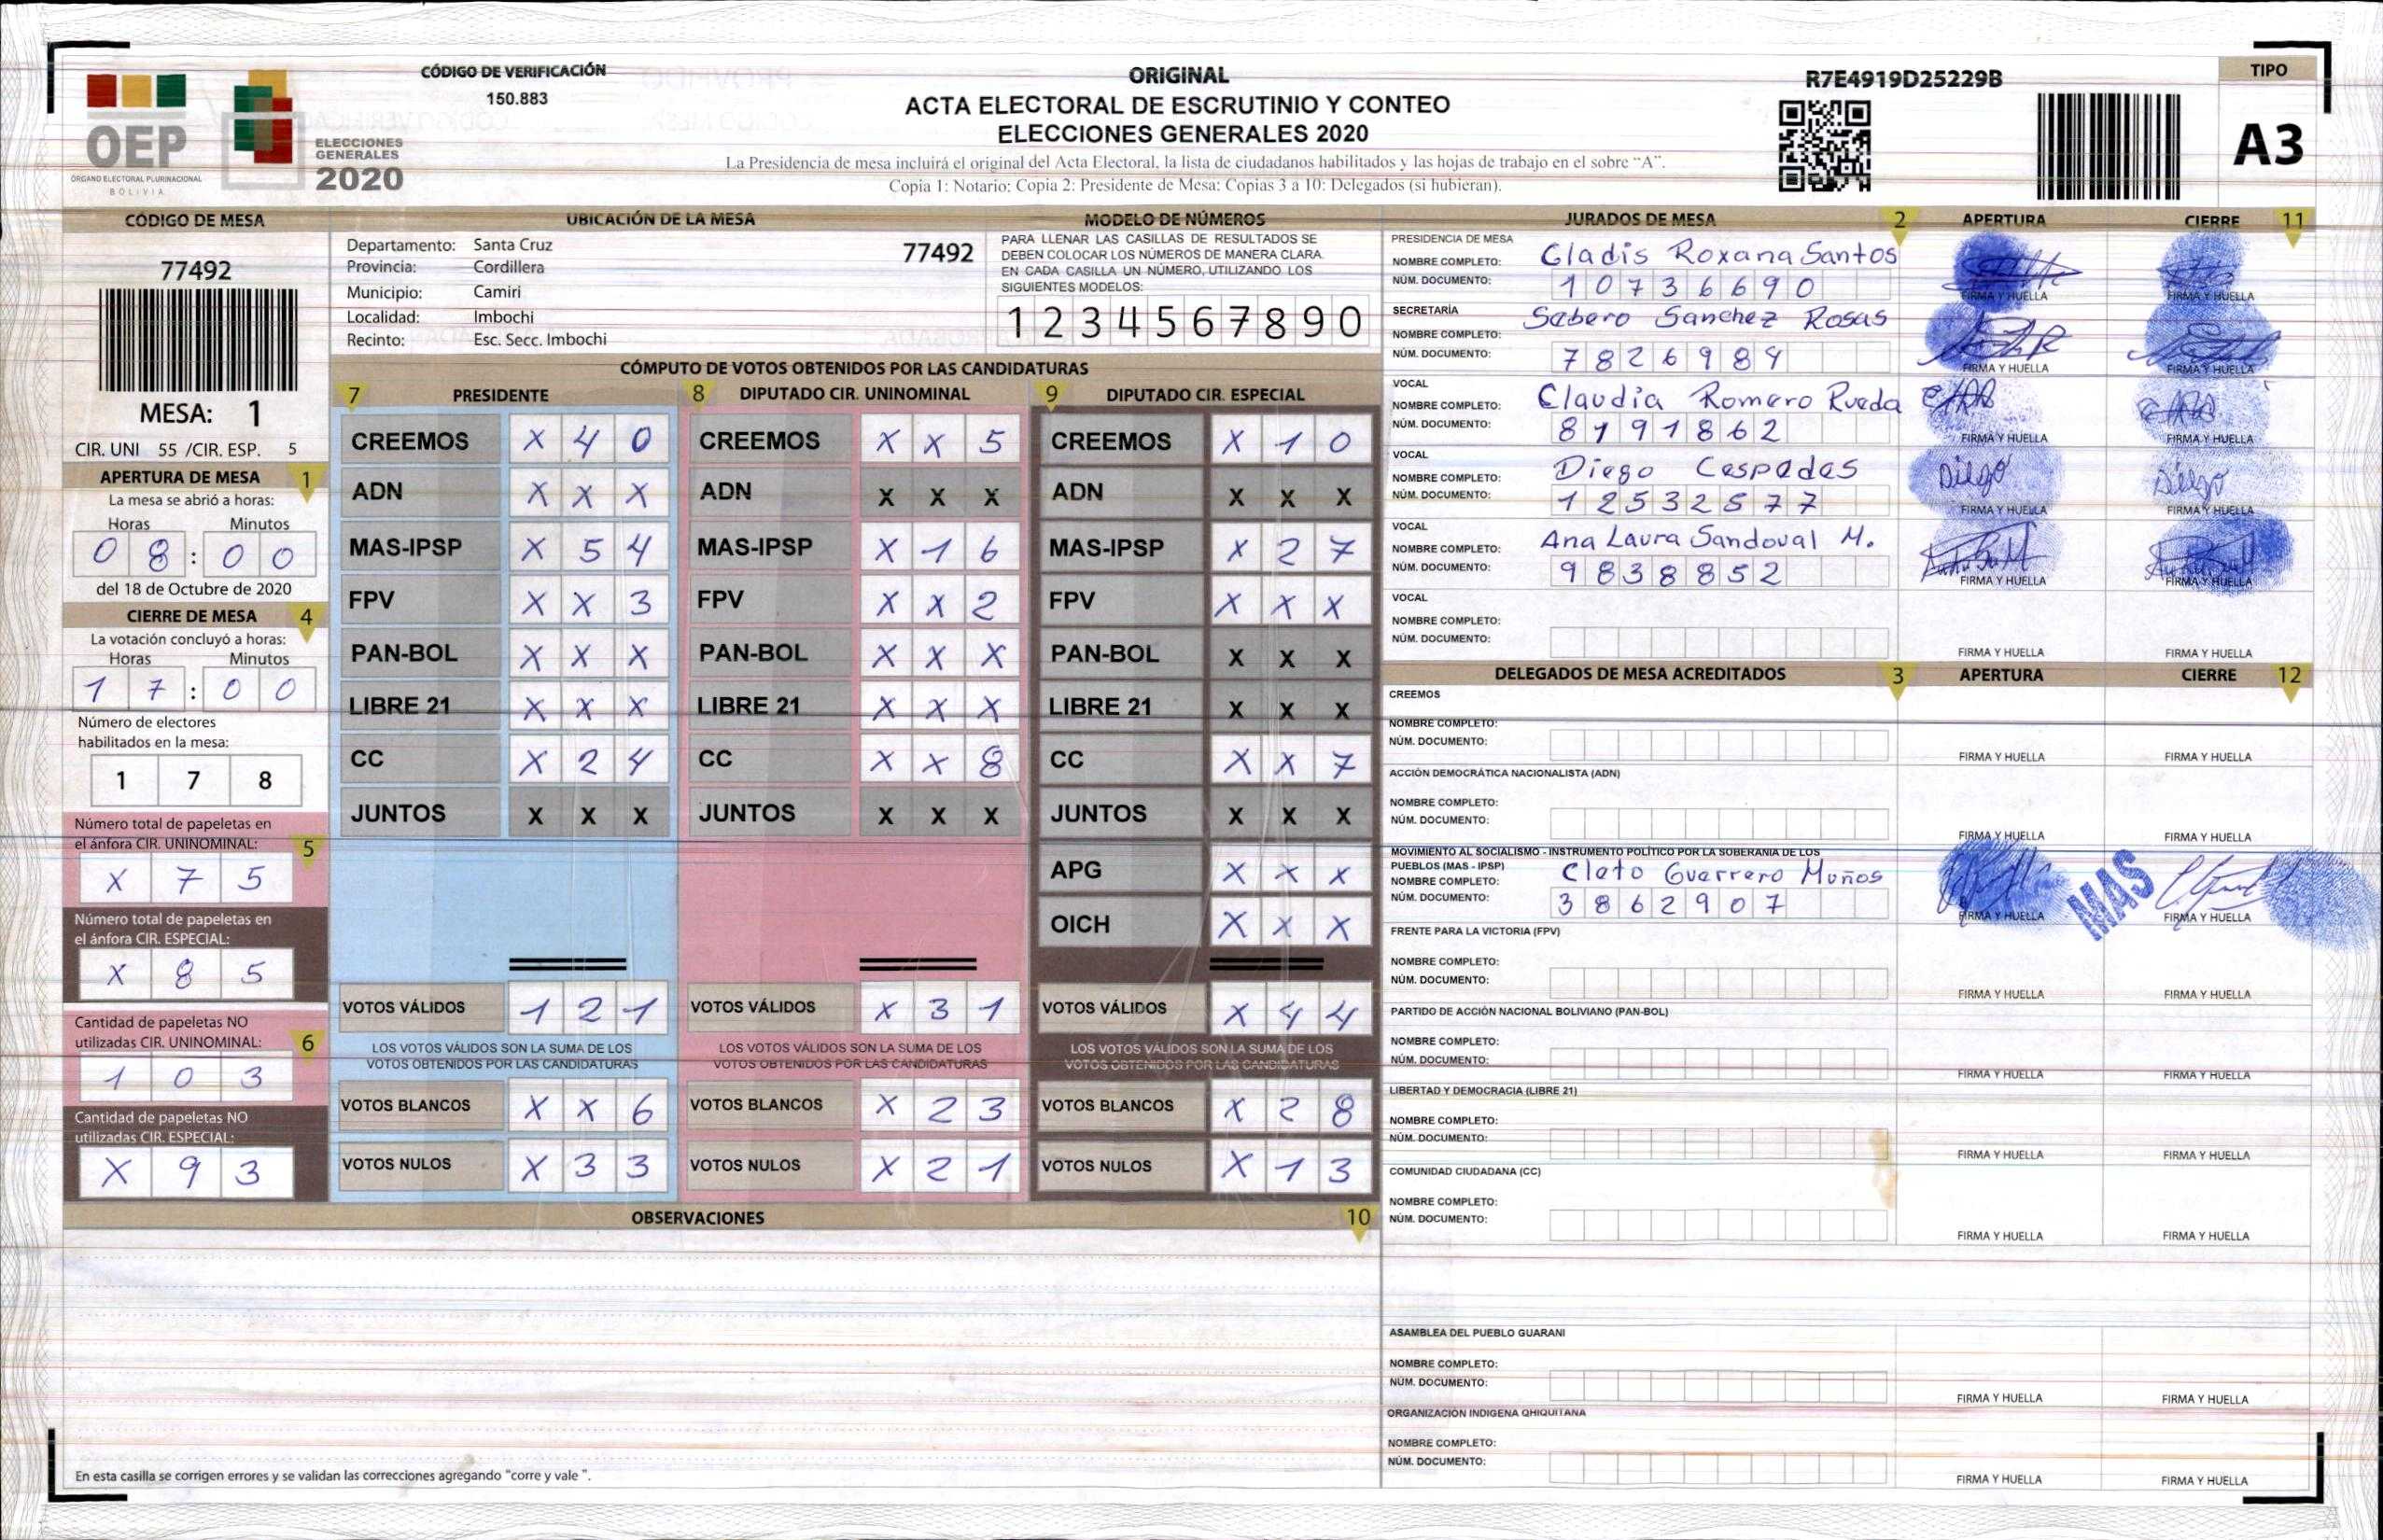 CÓDIGO DE VERIFICACIÓN
150.883
OEP
ÓRGANO ELECTORAL PLURINACIONAL
BOLIVIA
ELECCIONES
GENERALES
2020
ORIGINAL
ACTA ELECTORAL DE ESCRUTINIO Y CONTEO
ELECCIONES GENERALES 2020
La Presidencia de mesa incluirá el original del Acta Electoral, la lista de ciudadanos habilitados y las hojas de trabajo en el sobre "A".
Copia 1: Notario; Copia 2: Presidente de Mesa; Copias 3 a 10: Delegados (si hubieran).
R7E4919D25229B
TIPO
A3
CÓDIGO DE MESA
77492
MESA: 1
CIR. UNI 55 /CIR. ESP. 5
APERTURA DE MESA 1
La mesa se abrió a horas:
Horas Minutos
0 8 : 0 0
del 18 de Octubre de 2020
CIERRE DE MESA 4
La votación concluyó a horas:
Horas Minutos
1 7 : 0 0
Número de electores
habilitados en la mesa:
1 7 8
Número total de papeletas en
el ánfora CIR. UNINOMINAL: 5
X 7 5
Número total de papeletas en
el ánfora CIR. ESPECIAL:
X 8 5
Cantidad de papeletas NO
utilizadas CIR. UNINOMINAL: 6
1 0 3
Cantidad de papeletas NO
utilizadas CIR. ESPECIAL:
X 9 3
UBICACIÓN DE LA MESA
Departamento: Santa Cruz 77492
Provincia: Cordillera
Municipio: Camiri
Localidad: Imbochi
Recinto: Esc. Secc. Imbochi
MODELO DE NÚMEROS
PARA LLENAR LAS CASILLAS DE RESULTADOS SE
DEBEN COLOCAR LOS NÚMEROS DE MANERA CLARA.
EN CADA CASILLA UN NÚMERO, UTILIZANDO LOS
SIGUIENTES MODELOS:
1 2 3 4 5 6 7 8 9 0
CÓMPUTO DE VOTOS OBTENIDOS POR LAS CANDIDATURAS
7 PRESIDENTE
CREEMOS X 4 0
ADN X X X
MAS-IPSP X 5 4
FPV X X 3
PAN-BOL X X X
LIBRE 21 X X X
CC X 2 4
JUNTOS X X X
VOTOS VÁLIDOS 1 2 1
LOS VOTOS VÁLIDOS SON LA SUMA DE LOS
VOTOS OBTENIDOS POR LAS CANDIDATURAS
VOTOS BLANCOS X X 6
VOTOS NULOS X 3 3
8 DIPUTADO CIR. UNINOMINAL
CREEMOS X X 5
ADN X X X
MAS-IPSP X 1 6
FPV X X 2
PAN-BOL X X X
LIBRE 21 X X X
CC X X 8
JUNTOS X X X
VOTOS VÁLIDOS X 3 1
LOS VOTOS VÁLIDOS SON LA SUMA DE LOS
VOTOS OBTENIDOS POR LAS CANDIDATURAS
VOTOS BLANCOS X 2 3
VOTOS NULOS X 2 1
9 DIPUTADO CIR. ESPECIAL
CREEMOS X 1 0
ADN X X X
MAS-IPSP X 2 7
FPV X X X
PAN-BOL X X X
LIBRE 21 X X X
CC X X 7
JUNTOS X X X
APG X X X
OICH X X X
VOTOS VÁLIDOS X 4 4
LOS VOTOS VÁLIDOS SON LA SUMA DE LOS
VOTOS OBTENIDOS POR LAS CANDIDATURAS
VOTOS BLANCOS X 2 8
VOTOS NULOS X 1 3
OBSERVACIONES 10
En esta casilla se corrigen errores y se validan las correcciones agregando "corre y vale ".
JURADOS DE MESA 2 APERTURA CIERRE 11
PRESIDENCIA DE MESA
NOMBRE COMPLETO: Gladis Roxana Santos
NÚM. DOCUMENTO: 10736690
FIRMA Y HUELLA FIRMA Y HUELLA
SECRETARÍA
NOMBRE COMPLETO: Sabero Sanchez Rosas
NÚM. DOCUMENTO: 7826984
FIRMA Y HUELLA FIRMA Y HUELLA
VOCAL
NOMBRE COMPLETO: Claudia Romero Rueda
NÚM. DOCUMENTO: 8191862
FIRMA Y HUELLA FIRMA Y HUELLA
VOCAL
NOMBRE COMPLETO: Diego Cespedes
NÚM. DOCUMENTO: 12532577
Diego Diego
FIRMA Y HUELLA FIRMA Y HUELLA
VOCAL
NOMBRE COMPLETO: Ana Laura Sandoval M.
NÚM. DOCUMENTO: 9838852
FIRMA Y HUELLA FIRMA Y HUELLA
VOCAL
NOMBRE COMPLETO:
NÚM. DOCUMENTO:
FIRMA Y HUELLA FIRMA Y HUELLA
DELEGADOS DE MESA ACREDITADOS 3 APERTURA CIERRE 12
CREEMOS
NOMBRE COMPLETO:
NÚM. DOCUMENTO:
FIRMA Y HUELLA FIRMA Y HUELLA
ACCIÓN DEMOCRÁTICA NACIONALISTA (ADN)
NOMBRE COMPLETO:
NÚM. DOCUMENTO:
FIRMA Y HUELLA FIRMA Y HUELLA
MOVIMIENTO AL SOCIALISMO - INSTRUMENTO POLÍTICO POR LA SOBERANÍA DE LOS
PUEBLOS (MAS - IPSP)
NOMBRE COMPLETO: Cleto Guerrero Muños
NÚM. DOCUMENTO: 3862907
MAS
FIRMA Y HUELLA FIRMA Y HUELLA
FRENTE PARA LA VICTORIA (FPV)
NOMBRE COMPLETO:
NÚM. DOCUMENTO:
FIRMA Y HUELLA FIRMA Y HUELLA
PARTIDO DE ACCIÓN NACIONAL BOLIVIANO (PAN-BOL)
NOMBRE COMPLETO:
NÚM. DOCUMENTO:
FIRMA Y HUELLA FIRMA Y HUELLA
LIBERTAD Y DEMOCRACIA (LIBRE 21)
NOMBRE COMPLETO:
NÚM. DOCUMENTO:
FIRMA Y HUELLA FIRMA Y HUELLA
COMUNIDAD CIUDADANA (CC)
NOMBRE COMPLETO:
NÚM. DOCUMENTO:
FIRMA Y HUELLA FIRMA Y HUELLA
ASAMBLEA DEL PUEBLO GUARANI
NOMBRE COMPLETO:
NÚM. DOCUMENTO:
FIRMA Y HUELLA FIRMA Y HUELLA
ORGANIZACION INDIGENA QHIQUITANA
NOMBRE COMPLETO:
NÚM. DOCUMENTO:
FIRMA Y HUELLA FIRMA Y HUELLA